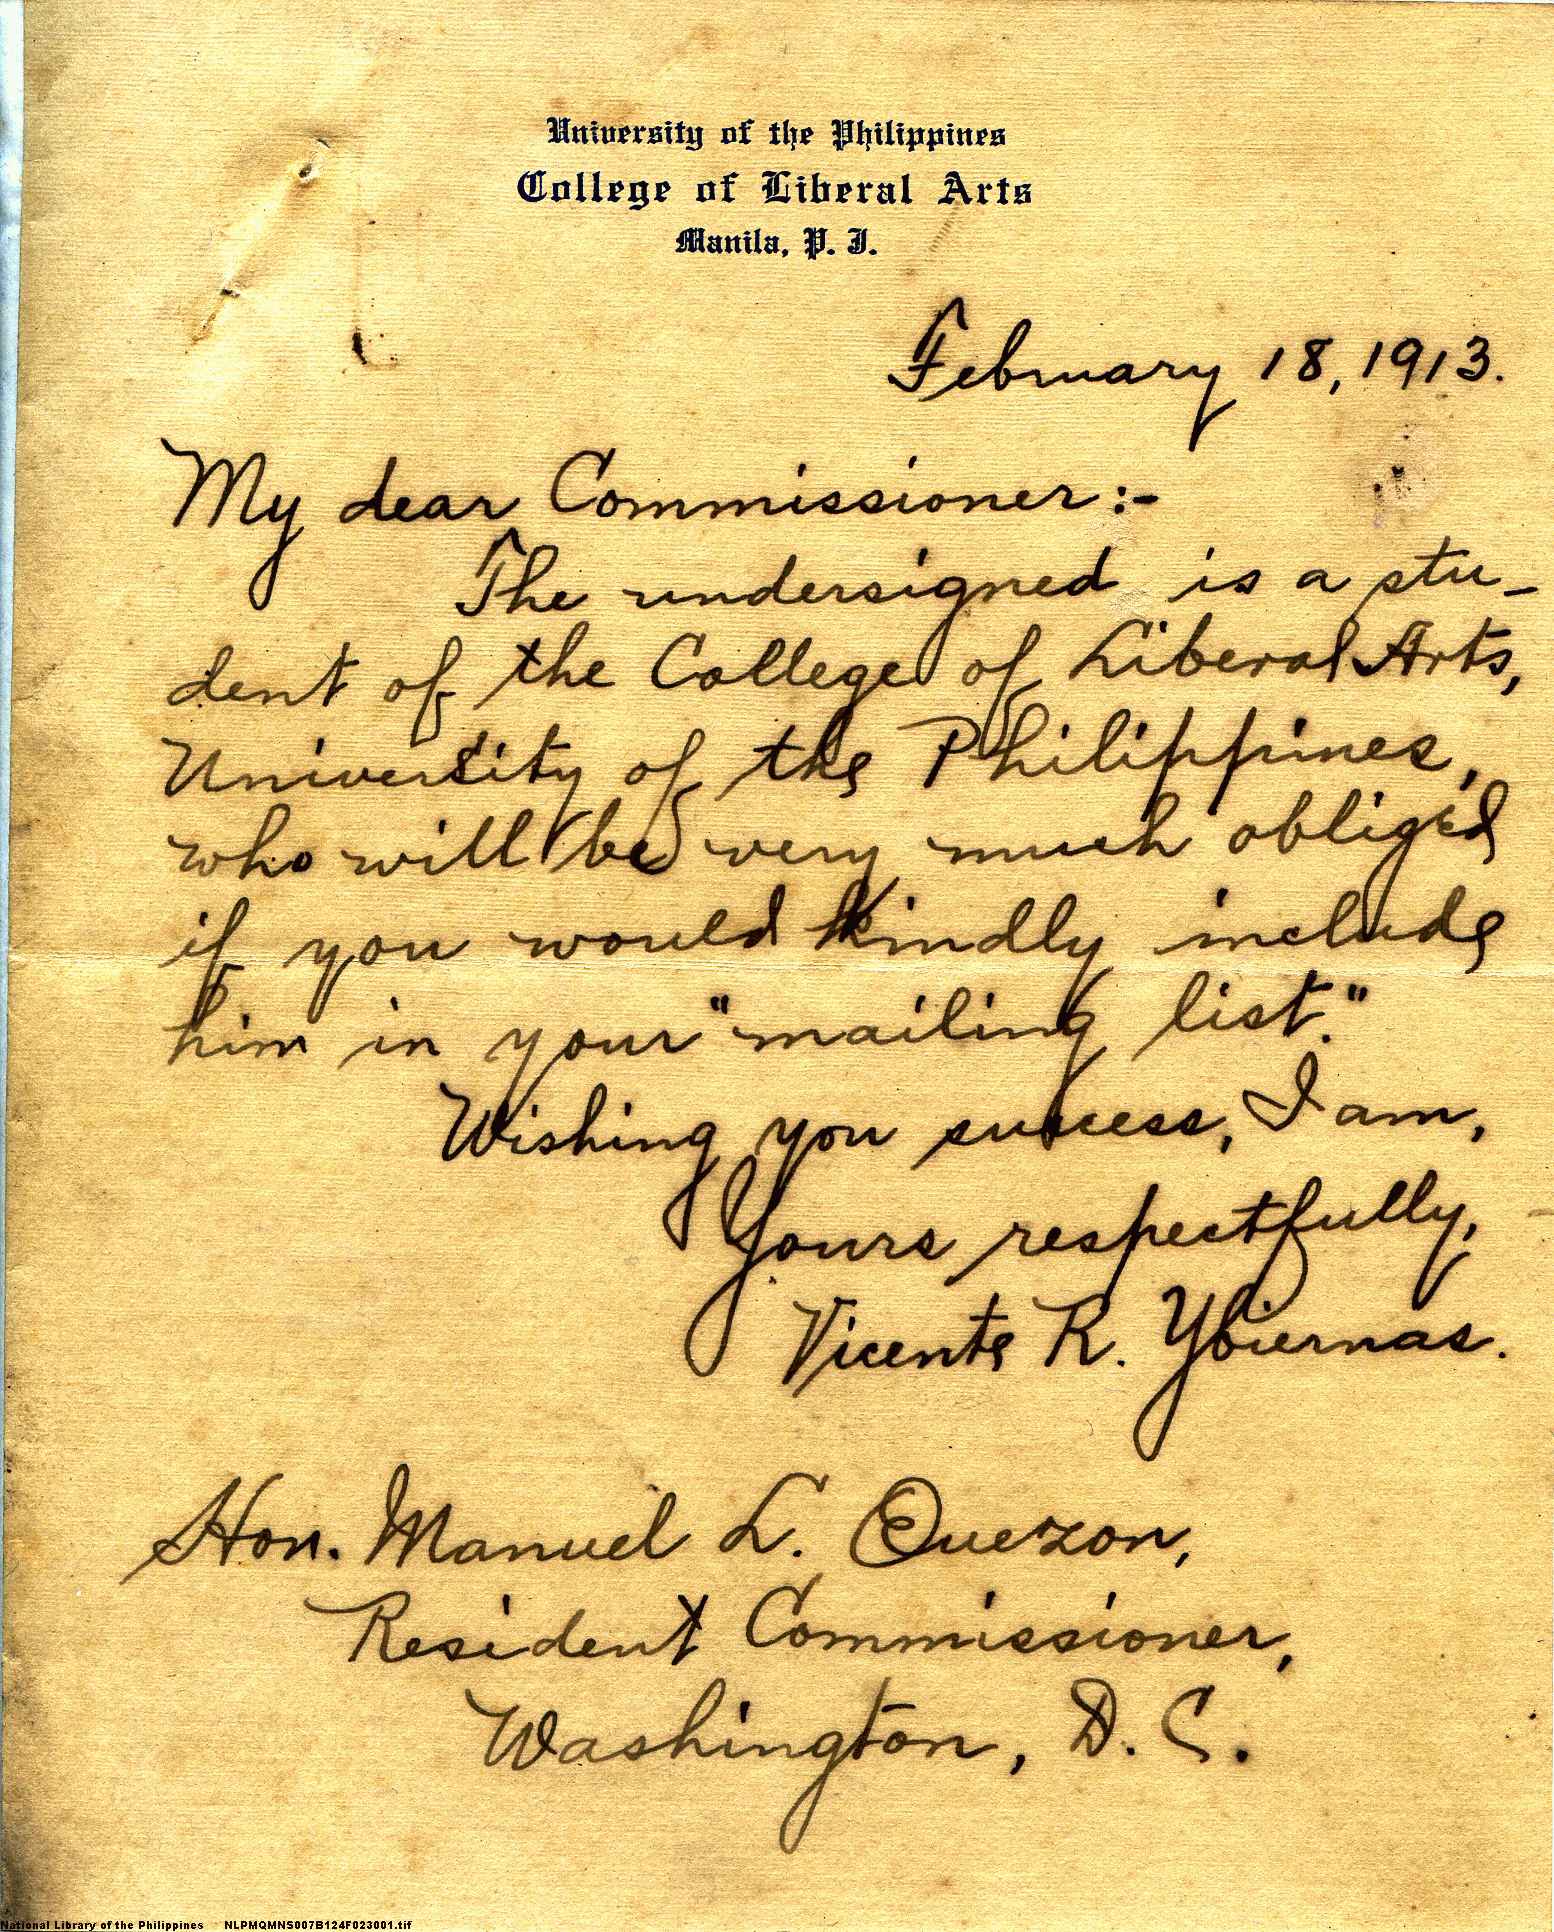 University of the Philippines
College of Liberal Arts
Manila, P. I.
February 18, 1913.
My dear Commissioner:-
The undersigned is a stu-
dent of the College of Liberal Arts,
University of the Philippines,
who will be very much obliged
if you would kindly include
him in your "mailing list."
Wishing you success, I am,
Yours respectfully,
Vicente R. Ybiernas.
Hon. Manuel L. Quezon,
Resident Commissioner,
Washington, D. C.
National Library of the Philippines NLPMQMNS007B124F023001.tif